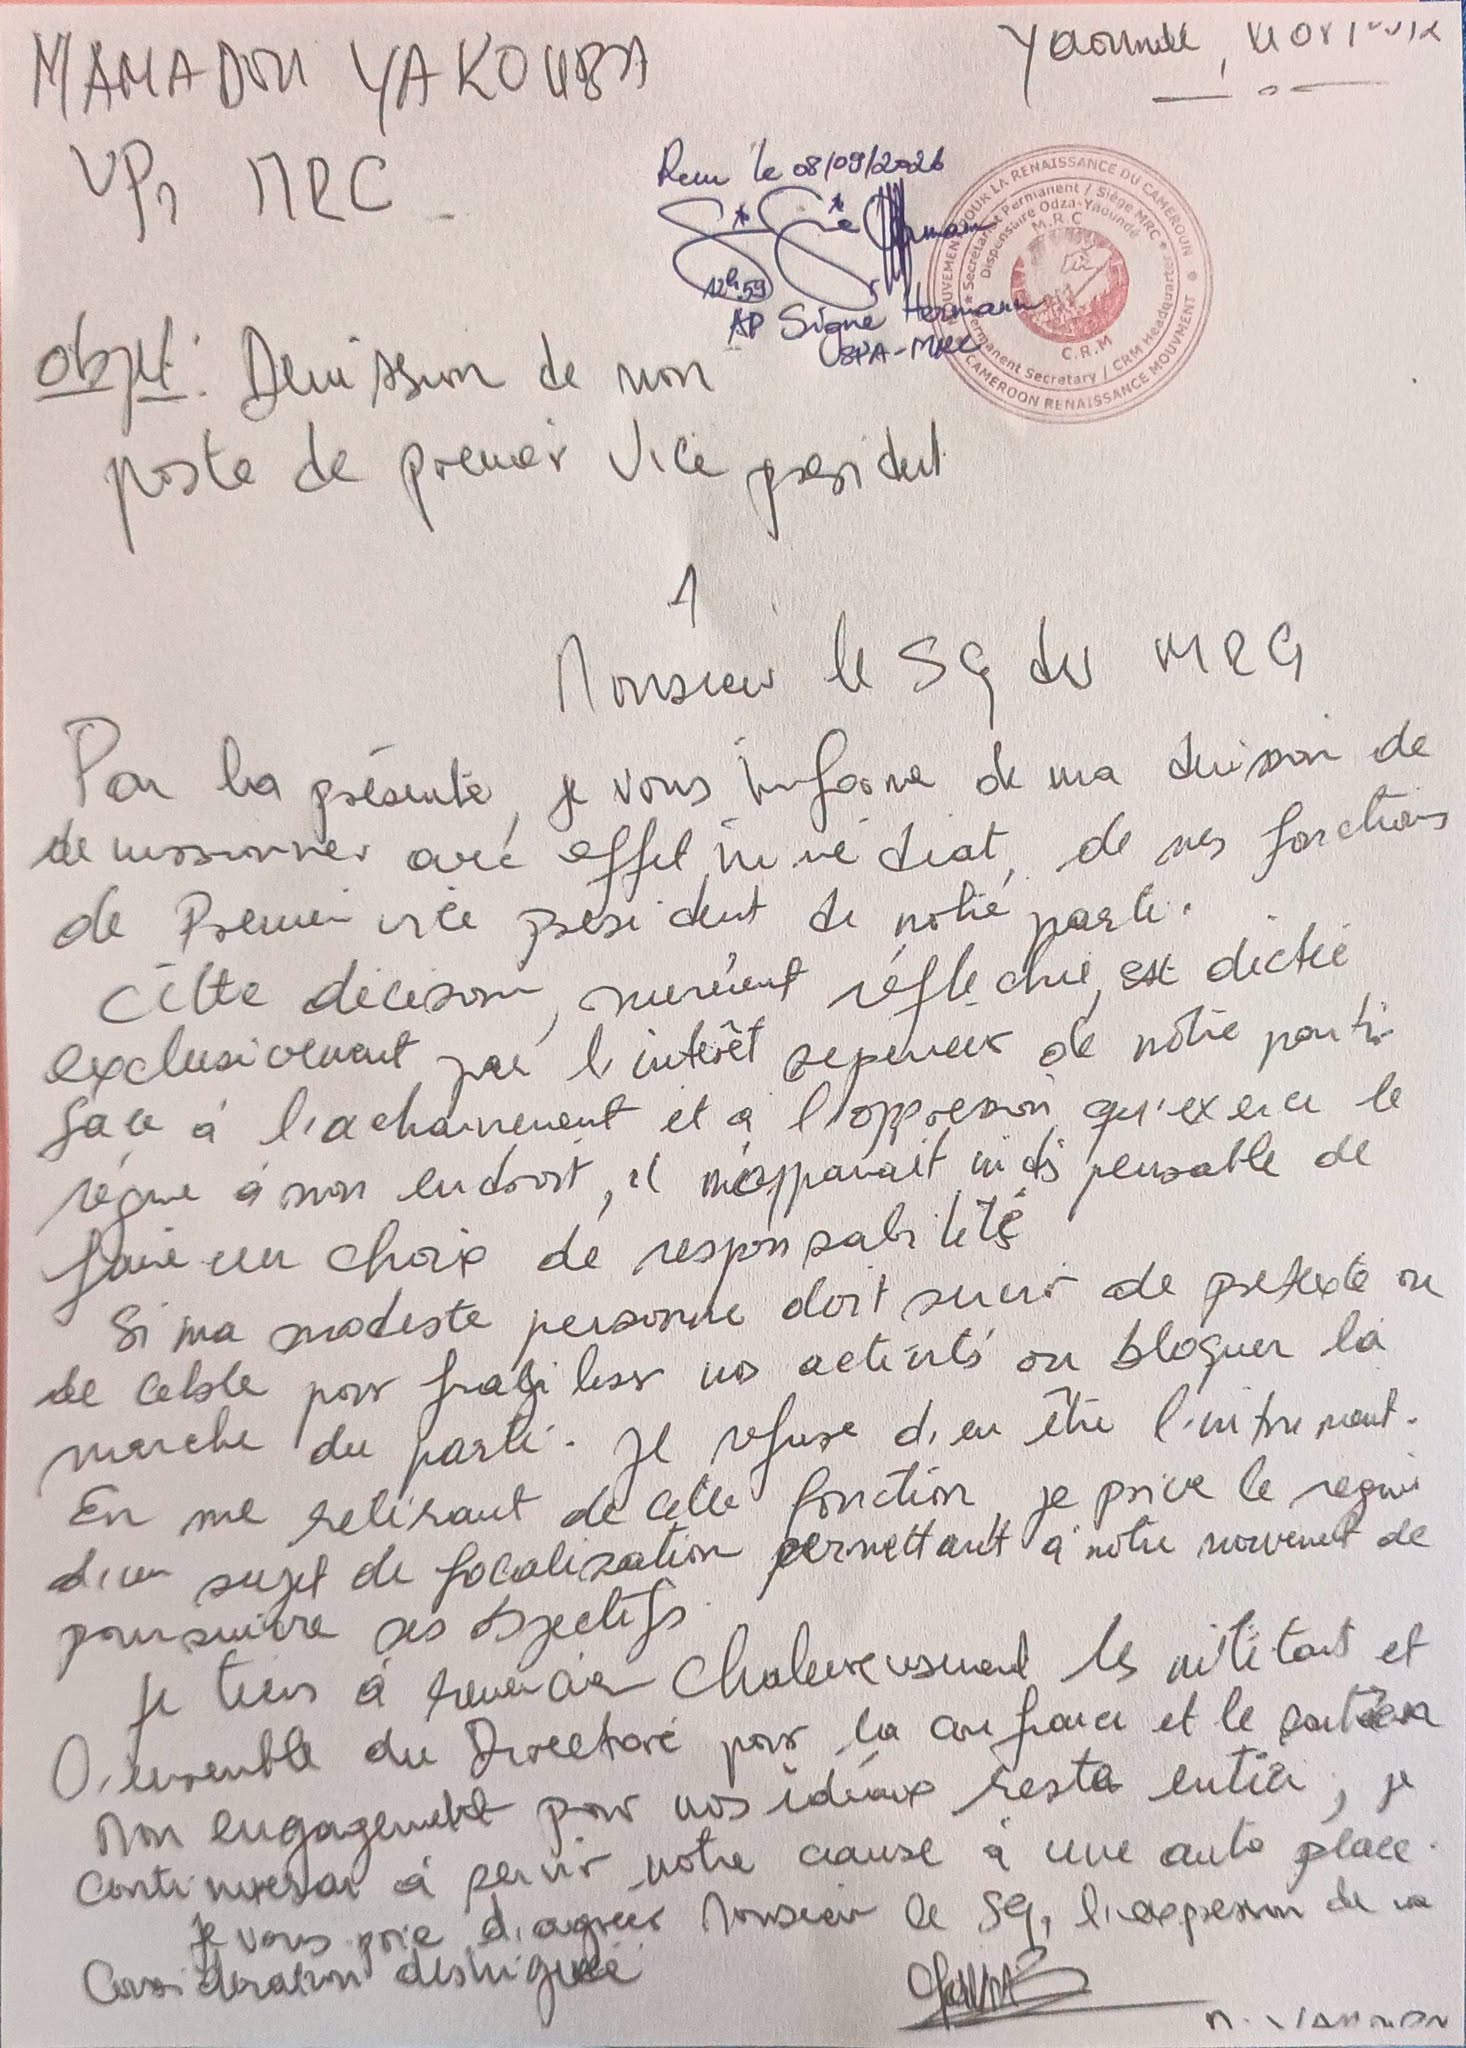 MAMADOU YAKOUBA
Yaoundé,
VP1 MRC
Recu le 08/09/2026
12h59
AP Signe Hermann
SPA-MRC
MOUVEMENT POUR LA RENAISSANCE DU CAMEROUN
Secrétariat Permanent / Siège MRC
Dispensaire Odza-Yaoundé
M.R.C
C.R.M
Permanent Secretary / CRM Headquarters
CAMEROON RENAISSANCE MOUVMENT
Objet: Demission de mon
poste de premier vice president
A
Monsieur le SG du MRC
Par la présente, je vous informe de ma décision de
demissionner avec effet immédiat, de mes fonctions
de Premier vice president de notre parti.
Cette décision, murement réflechie, est dictée
exclusivement par l'intérêt superieur de notre parti.
face à l'acharnement et à l'oppression qu'exerce le
régime à mon endroit, il m'apparait indispensable de
faire un choix de responsabilité
Si ma modeste personne doit servir de pretexte ou
de cible pour fragiliser nos activités ou bloquer la
marche du parti. Je refuse d'en être l'instrument.
En me retirant de cette fonction, je prive le regime
d'un sujet de focalisation permettant à notre mouvement de
poursuivre ses objectifs.
Je tiens à remercier chaleureusement les militant et
l'ensemble du Directoire pour la confiance et le soutien
Mon engagement pour nos idéaux reste entier, je
continuerai à servir notre cause à une autre place.
Je vous prie d'agréer Monsieur le SG, l'expression de ma
Consideration distinguée